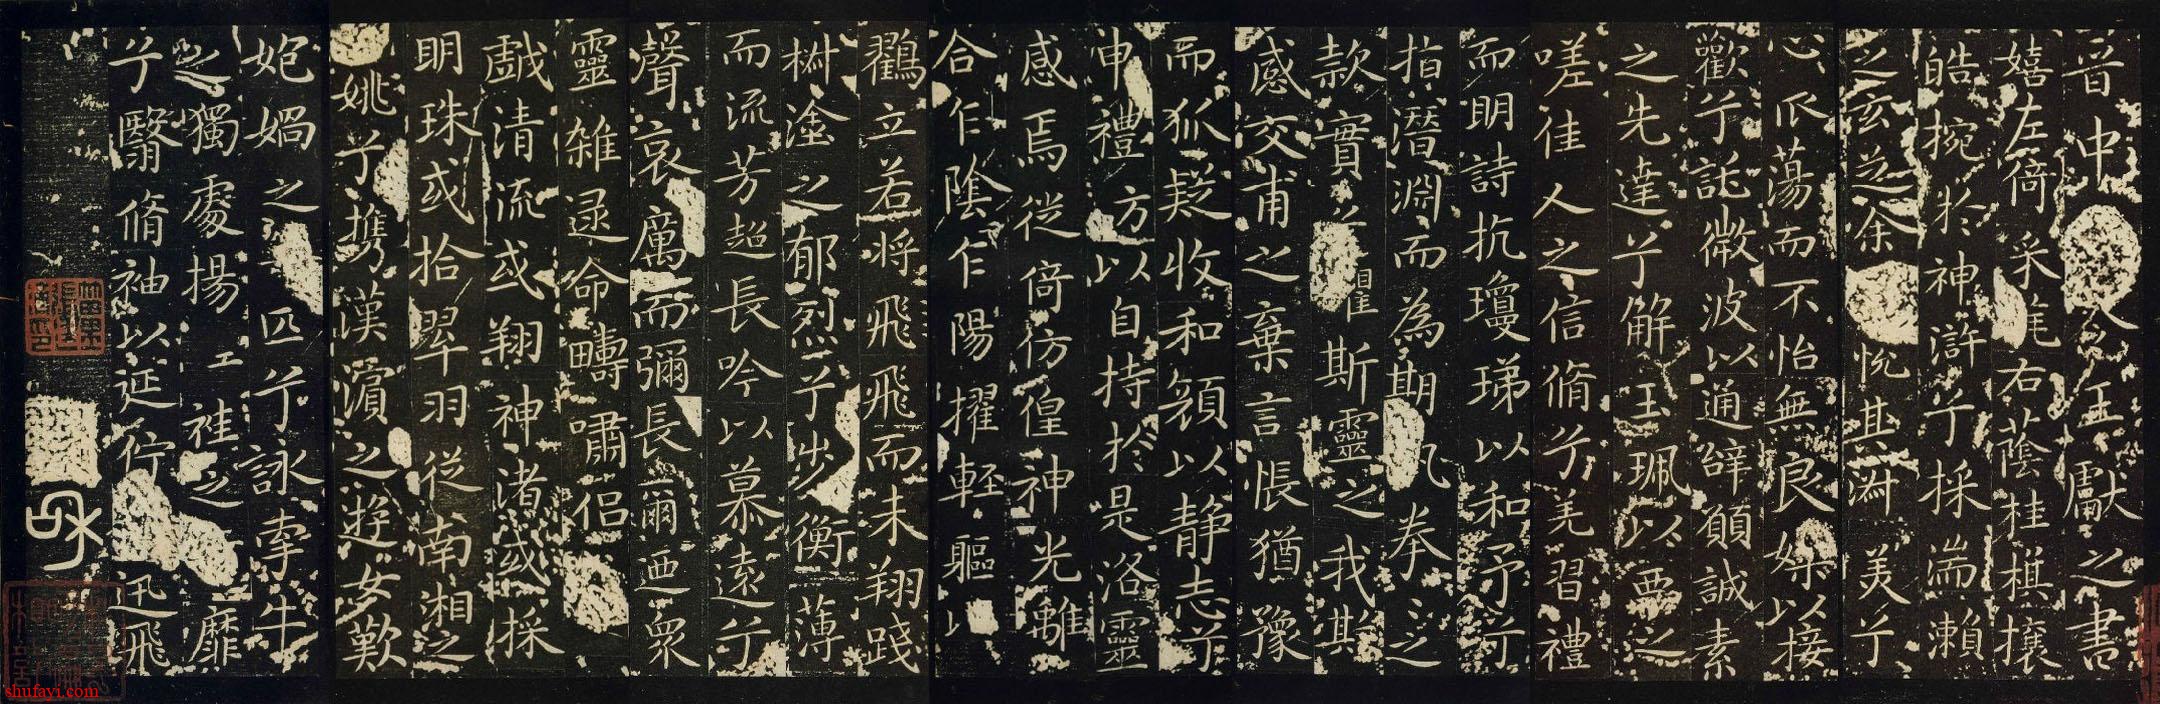 晋中令王獻之書
嬉左倚采旄右蔭桂棋攘
皓捥於神滸兮採湍瀨
之玄芝余悅其淋美兮
心振蕩而不怡無良媒以接
歡兮託微波以通辭願誠素
之先達兮解玉珮以要之
嗟佳人之信脩兮羌習禮
而明詩抗瓊珶以和予兮
指潛淵而為期執拳之
款實兮懼斯靈之我欺
感交甫之棄言悵猶豫
而狐疑收和顏以静志兮
申禮方以自持於是洛靈
感焉徙倚仿偟神光離
合乍陰乍陽擢輕軀以
鶴立若将飛飛而未翔踐
椒塗之郁烈兮步衡薄
而流芳超長吟以慕遠兮
聲哀厲而彌長爾迺衆
靈雜遝命疇嘯侶
戲清流或翔神渚或採
明珠或拾翠羽從南湘之
姚兮攜漢濱之遊女歎
妑媧之匹兮詠牽牛
之獨處揚袿之靡
兮翳脩袖以延佇迅飛
shufayi.com